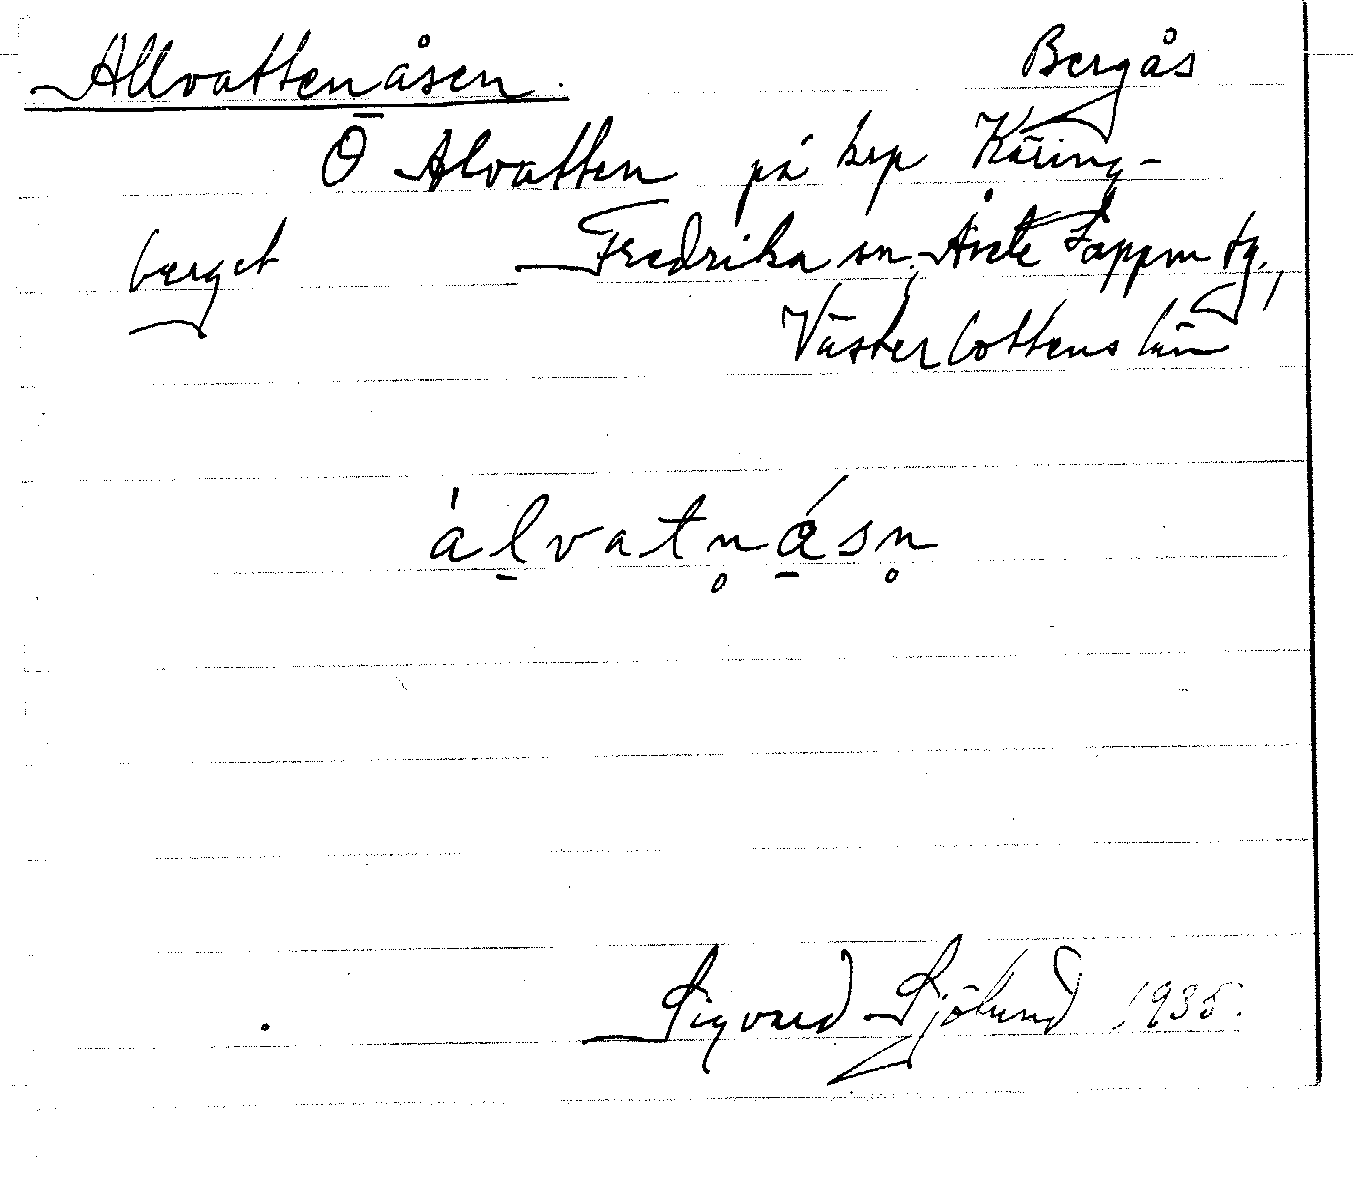 Allvattenåsen. Bergås
Ö Alvatten på kep Käring-
berget Fredrika sn. Åsele Lappm tg.,
Västerbottens län
álvatn̥ásn̥
Sigvard Sjölund 1935.